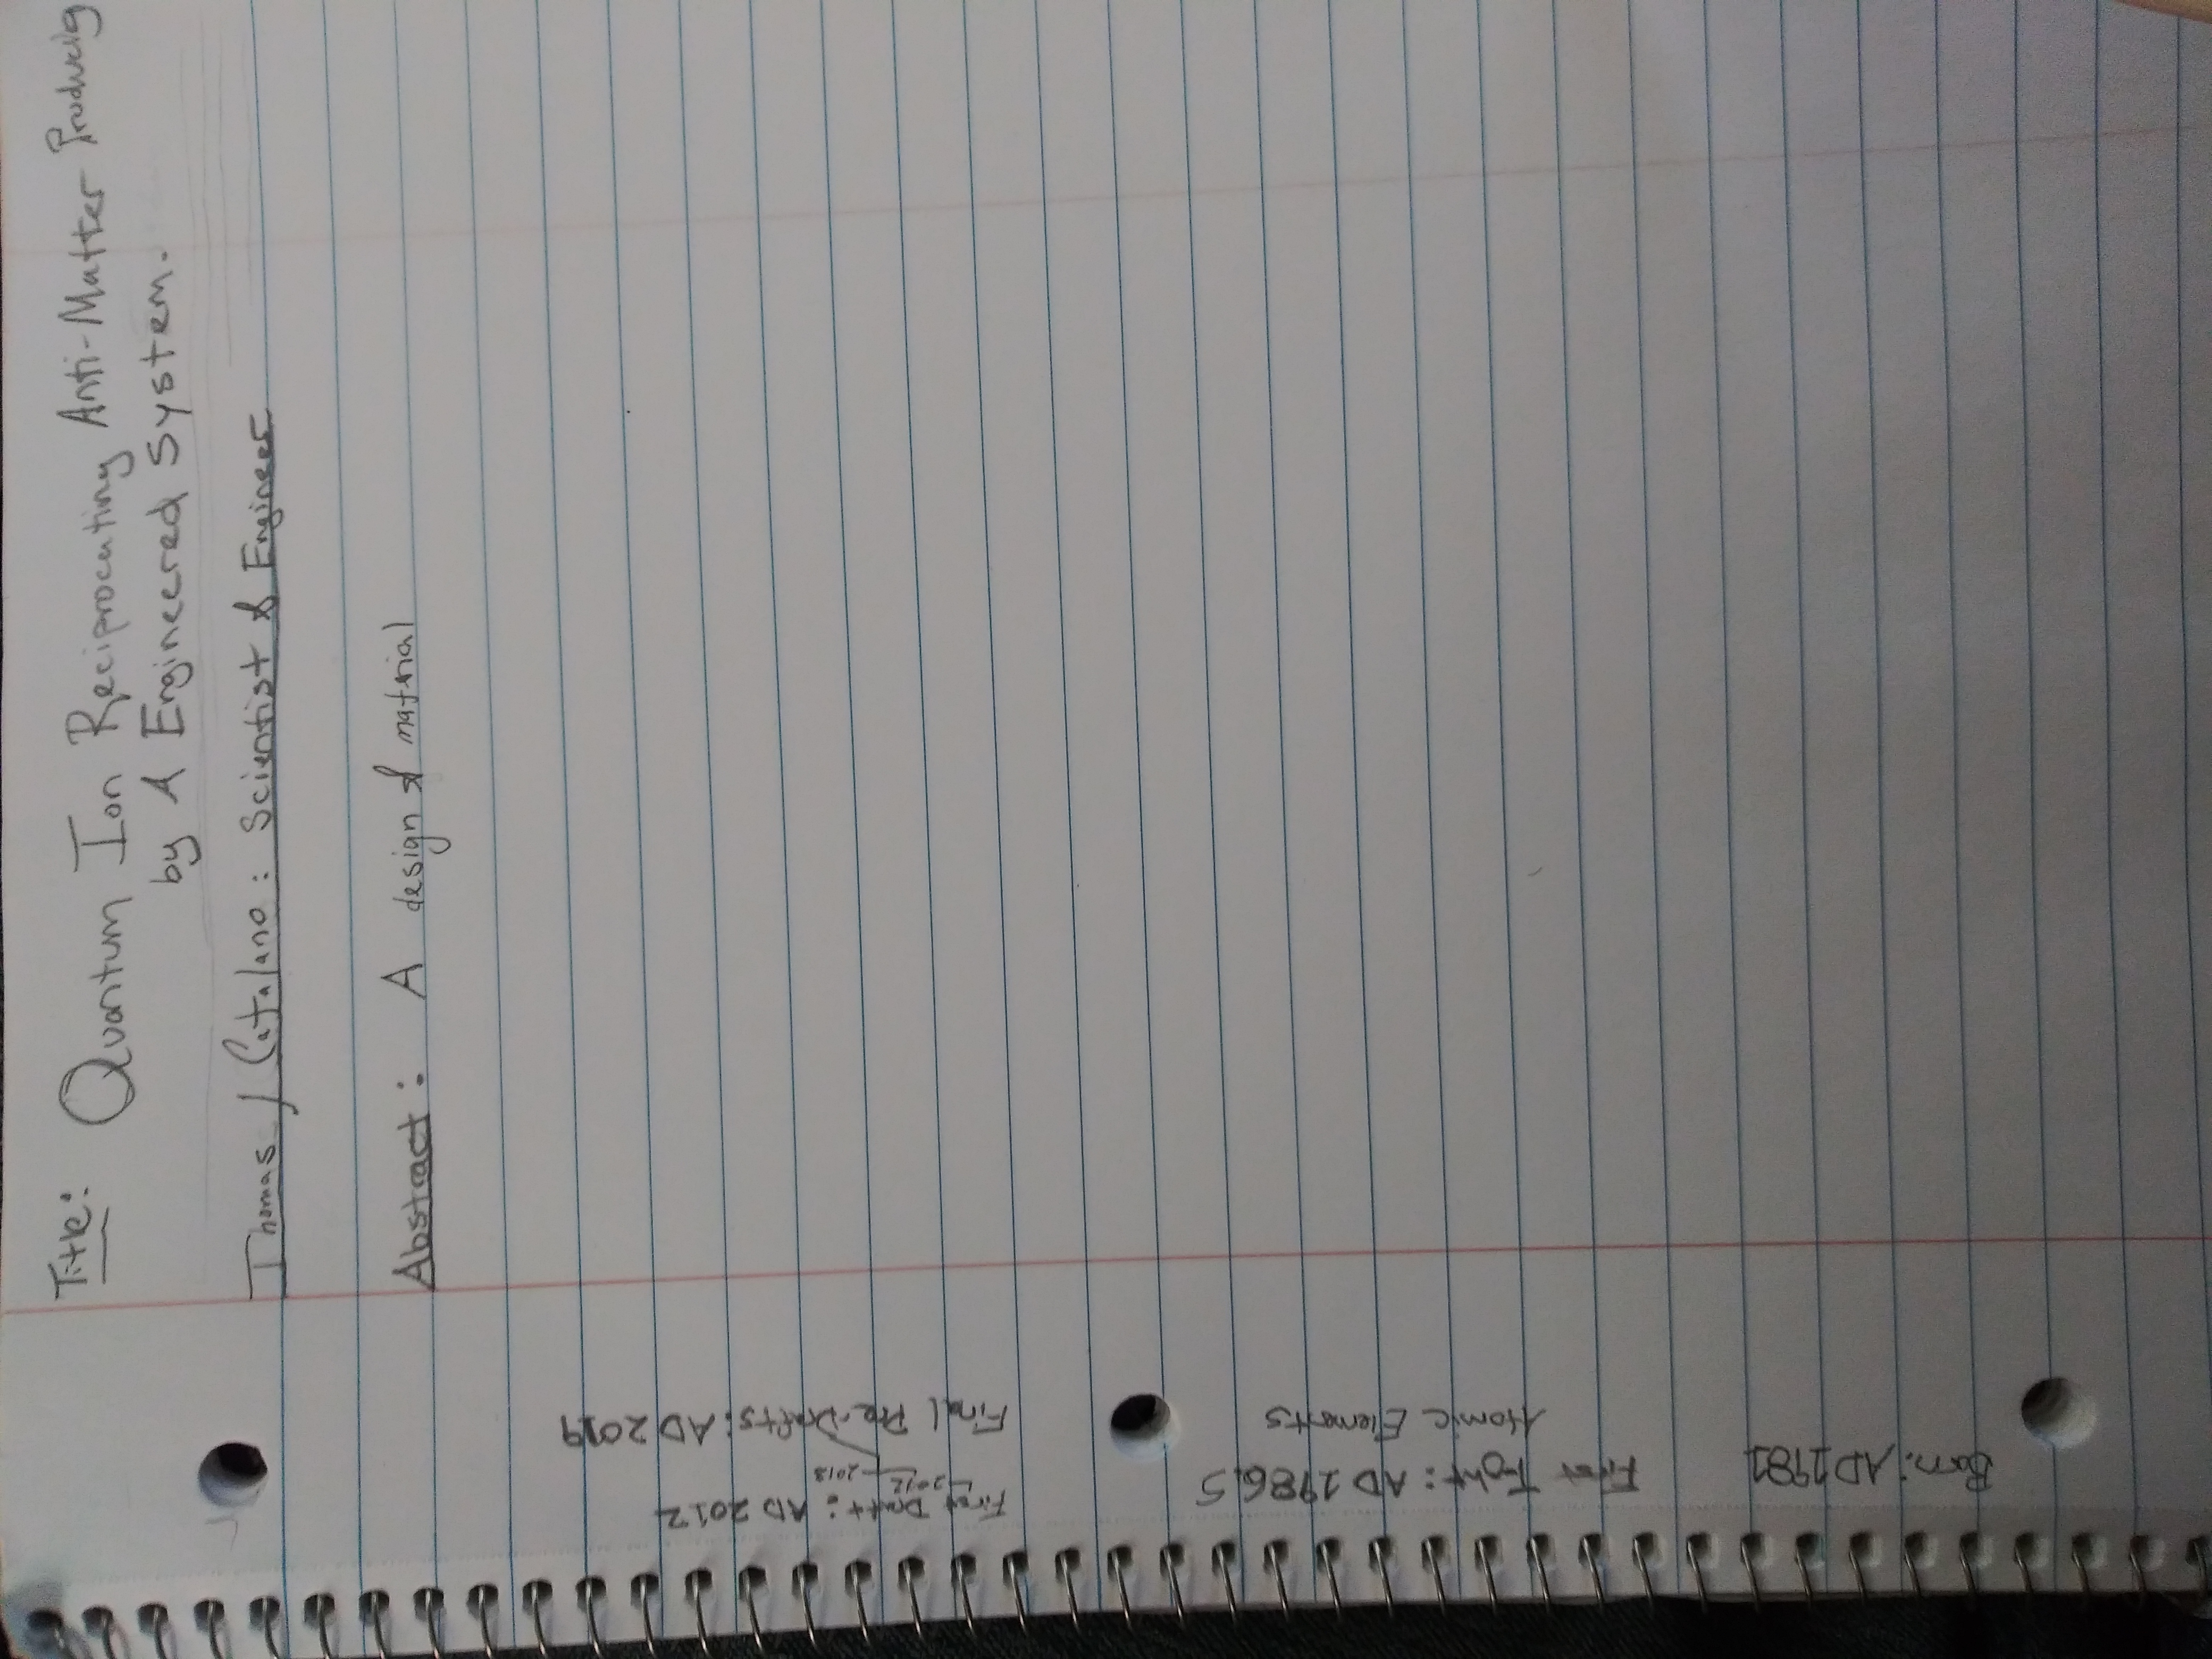 Title: Quantum Ion Reciprocating Anti-Matter Producig
by A Engineered System.
Thomas J Catalano: Scientist & Engineer
Abstract: A design & material
Born: AD 1982
First Toht: AD 1986.5
Atomic Elements
First Draft: AD 2012
2012
2018
Final Pre-Drafts: AD 2019